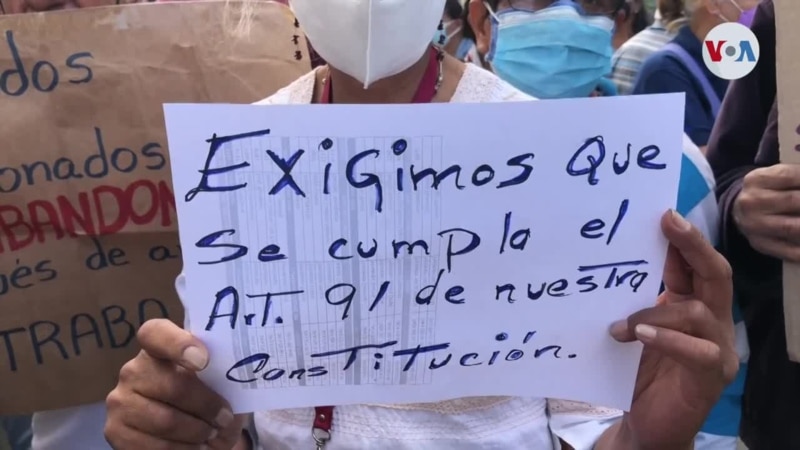 dos
onados
ABANDON
ués de a
TRABA
EXIGIMOS QUE
Se cumpla el
A.T. 91 de nuestra
Constitución.
VOA